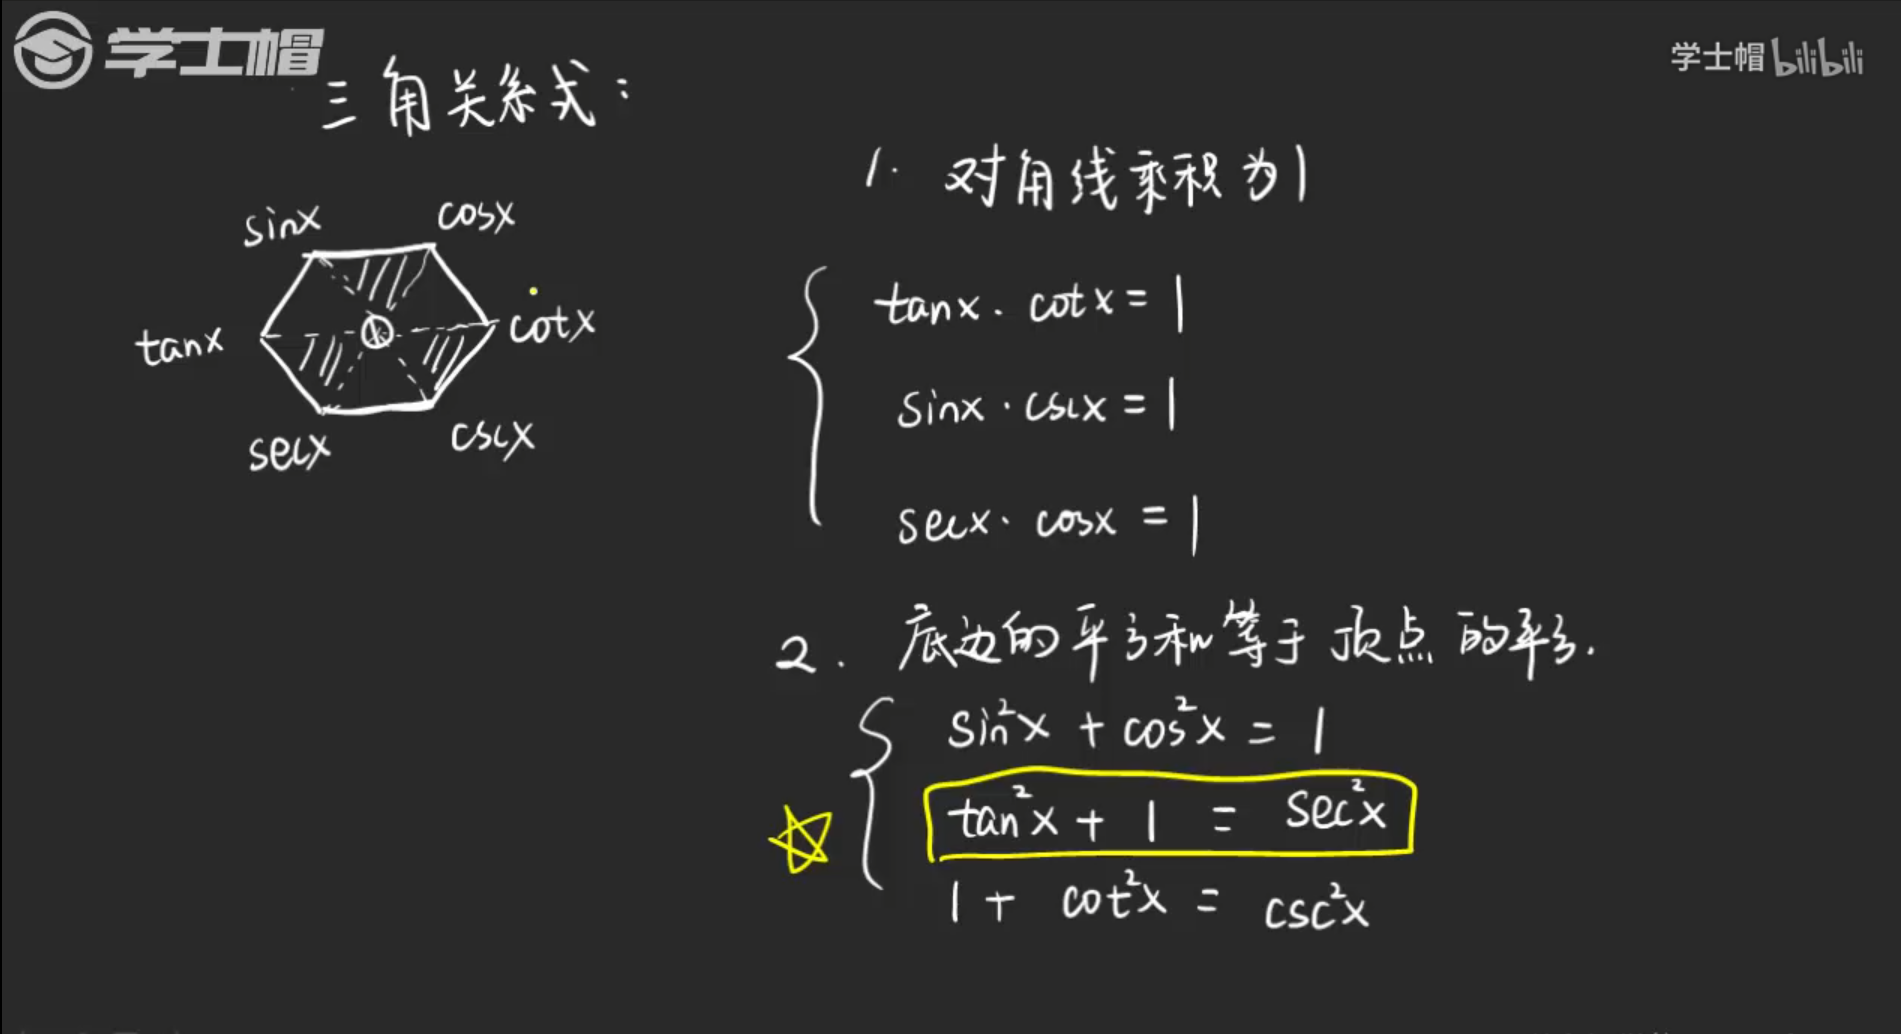 学士帽
学士帽 bilibili
三角关系式:
sinx cosx
tanx 1 cotx
secx cscx
1. 对角线乘积为1
tanx · cotx = 1
sinx · cscx = 1
secx · cosx = 1
2. 底边的平方和等于顶点的平方.
sin²x + cos²x = 1
tan²x + 1 = sec²x
1 + cot²x = csc²x